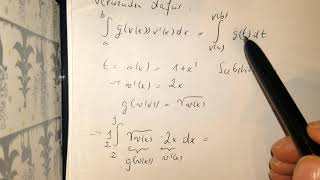 verwenden dafür:
∫_a^b g(v(x)) v'(x) dx = ∫_{v(a)}^{v(b)} g(t) dt
t = v(x) = 1 + x²
→ v'(x) = 2x
g(v(x)) = √v(x)
→ 1/2 ∫_2^3 √v(x) · 2x dx =
g(v(x)) v'(x)